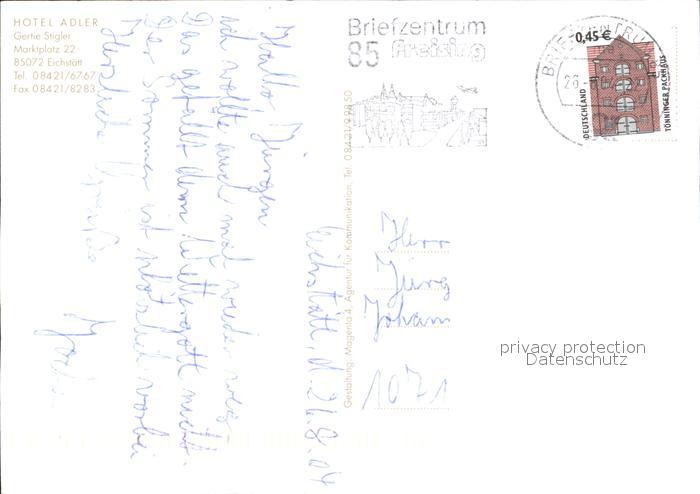 HOTEL ADLER
Gertie Stigler
Marktplatz 22
85072 Eichstätt
Tel. 08421/6767
Fax 08421/8283
Briefzentrum
85 Freising
BRIEFZENTRUM
0,45 €
DEUTSCHLAND
TÖNNINGER PACKHAUS
Gestaltung: Magenta 4, Agentur für Kommunikation, Tel. 08421/
Eichstätt, d. 26.8.04
Hallo Jürgen
ich wollte auch mal wieder weg.
Das gefällt dem Wettergott nicht.
Der Sommer ist plötzlich vorbei
Herzliche Grüße
Herr
Jürg
Johann
1071
privacy protection
Datenschutz